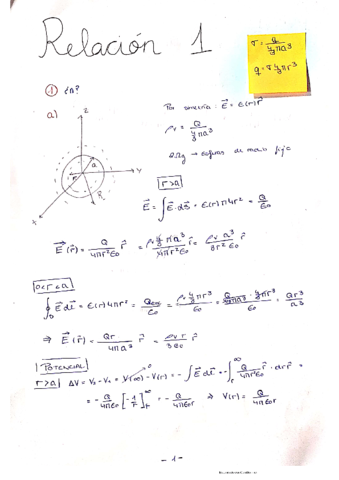 Relación 1
σ = Q / (4/3 π a³)
q = σ 4/3 π r³
① ¿n?
a)
z
a
r
R
y
x
Por simetría: E⃗ = E(r) r̂
ρv = Q / (4/3 π a³)
r>a
E⃗ = ∫ E⃗ · ds⃗ = E(r) π 4r² = Q/ε₀
E⃗(r⃗) = Q / (4πr²ε₀) r̂ = ρ · 4/3 π a³ / (4πr²ε₀) r̂ = ρv a³ / (3r²ε₀) r̂
0<r<a
∮ E⃗ dl⃗ = E(r) 4πr² = Qenc/ε₀ = ρ 4/3 π r³ / ε₀ = Q / (4/3 π a³) · 4/3 π r³ / ε₀ = Q r³ / a³
⇒ E⃗(r⃗) = Q r / (4π a³) r̂ = ρv r / (3ε₀) r̂
POTENCIAL
r>a ΔV = V(∞) - V(r) = - ∫ E⃗ dl⃗ = - ∫ᵣ^∞ Q / (4πr²ε₀) r̂ · dr r̂ =
= - Q / (4πε₀) [-1/r]ᵣ^∞ = - Q / (4πε₀r) ⇒ V(r) = Q / (4πε₀r)
- 1 -